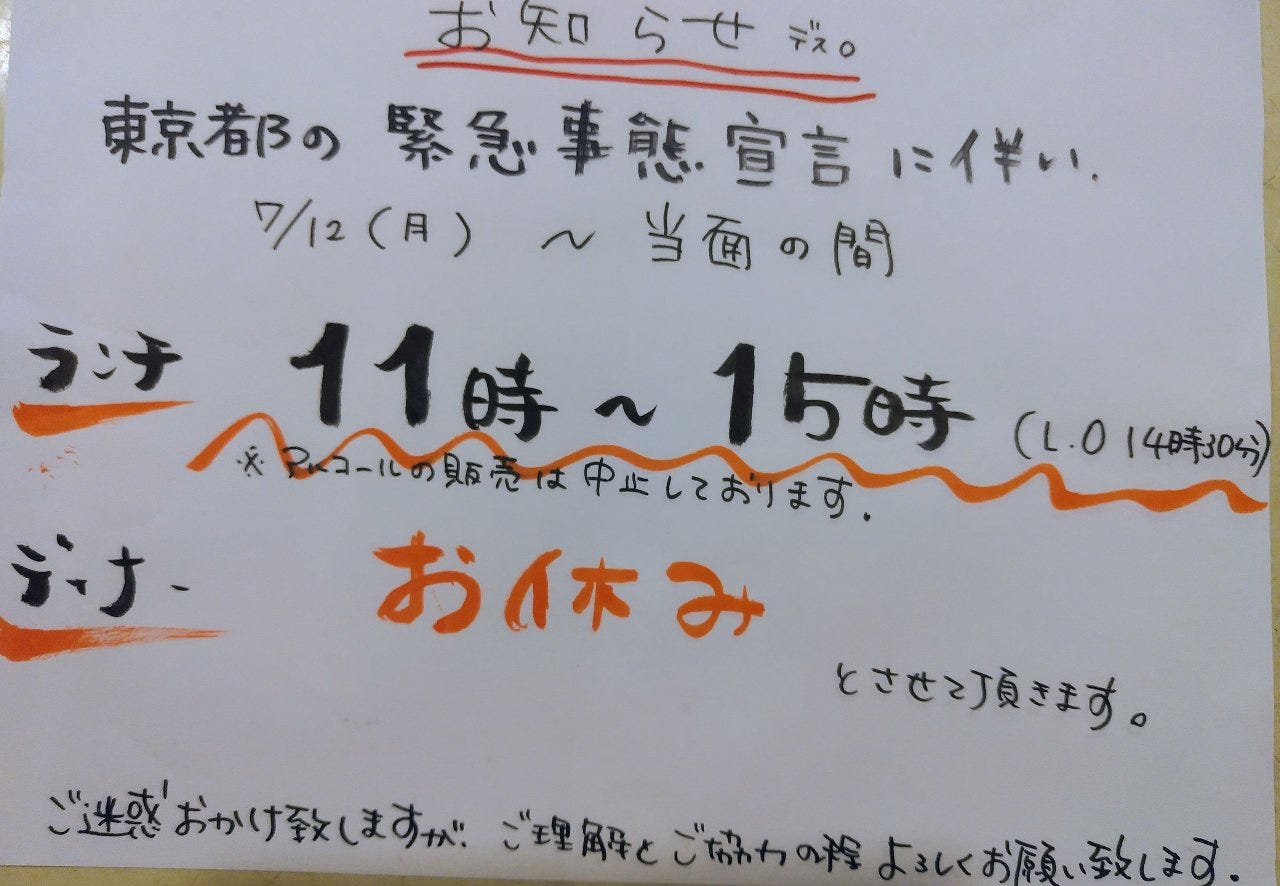 お知らせ デス。
東京都の 緊急事態宣言に伴い.
7/12(月) ～ 当面の間
ランチ 11時～15時 (L.O 14時30分)
※ アルコールの販売は中止しております.
ディナー お休み
とさせて頂きます。
ご迷惑おかけ致しますが、ご理解とご協力の程よろしくお願い致します.